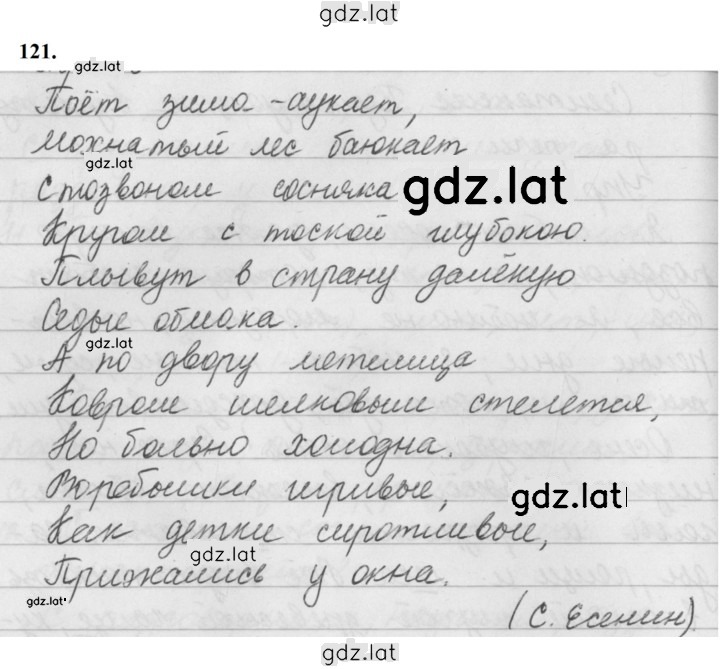 gdz.lat
121.
gdz.lat
Поёт зима - аукает,
Мохнатый лес баюкает
gdz.lat
Стозвоном сосняка
gdz.lat
Кругом с тоской глубокою.
Плывут в страну далёкую
Седые облака.
gdz.lat
А по двору метелица
Ковром шелковым стелется,
Но больно холодна.
Воробышки игривые,
gdz.lat
Как детки сиротливые,
gdz.lat
Прижались у окна.
gdz.lat
(С. Есенин)
gdz.lat